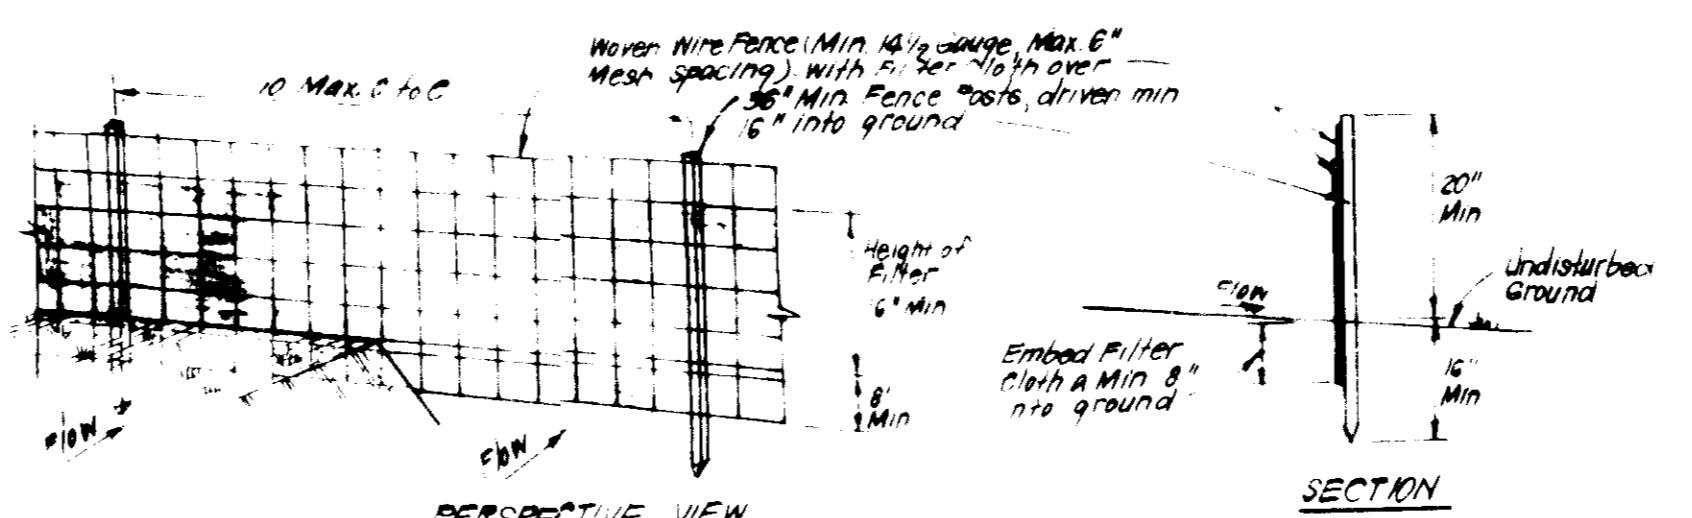 Woven Wire Fence (Min. 14½ Gauge, Max. 6"
Mesh spacing) with Filter Cloth over
36" Min. Fence Posts, driven min
16" into ground
10 Max. C to C
Height of
Filter
6" Min
8'
Min
Flow
Flow
PERSPECTIVE VIEW
20"
Min
Undisturbed
Ground
Flow
Embed Filter
Cloth a Min 8"
nto ground
16"
Min
SECTION